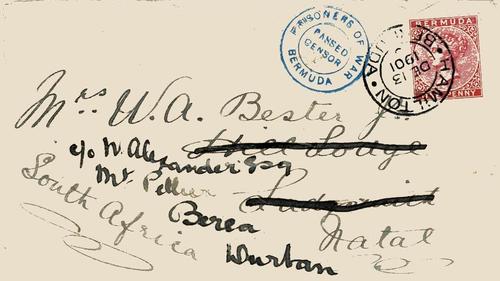 PRISONERS OF WAR
PASSED
CENSOR
BERMUDA
BERMUDA
PENNY
HAMILTON
DE 13
1901
BERMUDA
Mrs W. A. Bester
Hill Lodge
c/o W. Alexander Esq
Mt Pellier
South Africa
Berea
Natal
Durban